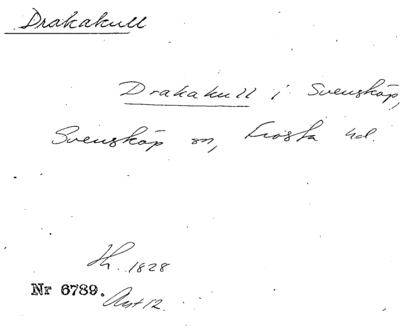 Drakakull
Drakakull i Svensköp,
Svensköp sn, Frosta hd.
Hh. 1828
Nr 6789. Avst 12.